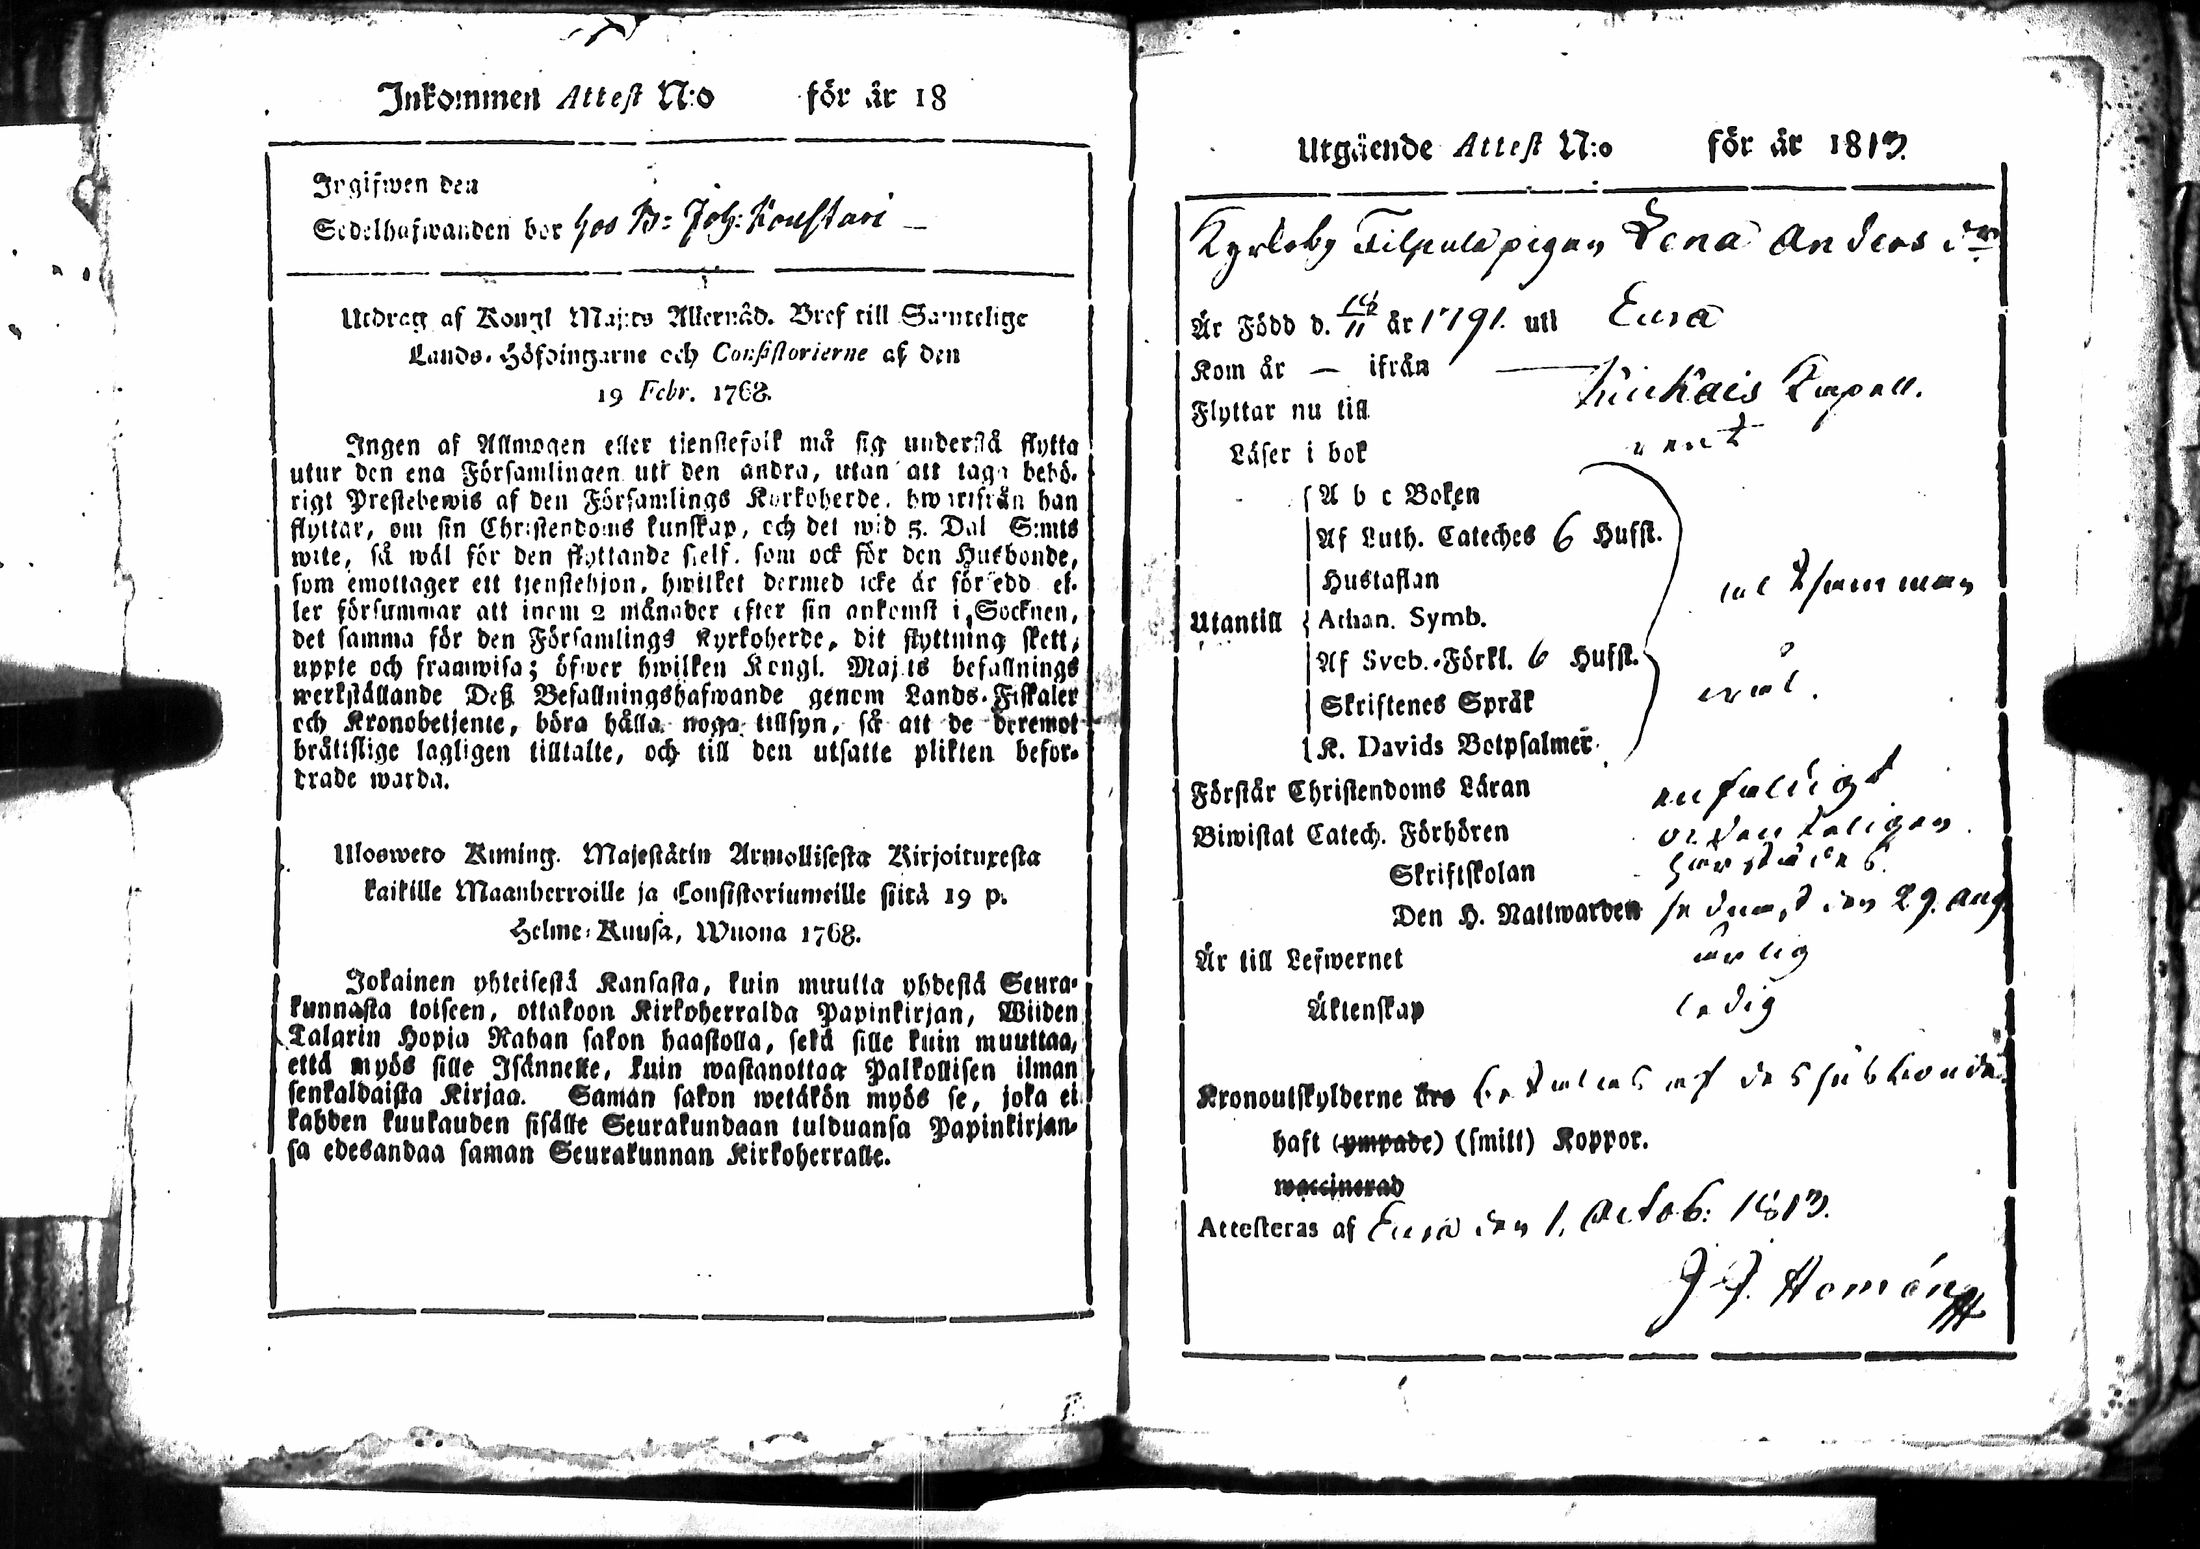 Inkommen Attest N:o för år 18
Ingifwen den
Sedelhafwanden bor hos B: Joh: Knustari
Utdrag af Kongl Maj:ts Allernåd. Bref till Samtelige
Lands-Höfdingarne och Consistorierne af den
19 Febr. 1768.
Ingen af Allmogen eller tienstefolk må sig understå flytta
utur den ena Församlingen uti den andra, utan att taga behö-
rigt Prestebewis af den Församlings Kyrkoherde, hwarifrån han
flyttar, om sin Christendoms kunskap, och det wid 5. Dal S:mts
wite, så wäl för den flyttande sielf, som ock för den Husbonde,
som emottager ett tjenstehjon, hwilket dermed icke är försedd el-
ler försummar att inom 2 månader efter sin ankomst i Socknen,
det samma för den Församlings Kyrkoherde, dit flyttning skett,
uppte och framwisa; öfwer hwilken Kongl. Maj:ts befallnings
werkställande Deß Befallningshafwande genom Lands-Fiskaler
och Kronobetjente, böra hålla noga tillsyn, så att de deremot
brätislige lagligen tilltalte, och till den utsatte plikten befor-
drade warda.
Ulosweto Kuning. Majestätin Armollisesta Kirjoituxesta
kaikille Maanherroille ja Consistoriumeille siitä 19 p.
Helme-Kuusa, Wuona 1768.
Jokainen yhteisestä Kansasta, kuin muutta yhdestä Seura-
kunnasta toiseen, ottakoon Kirkoherralda Papinkirjan, Wiiden
Talarin Hopia Rahan sakon haastolla, sekä sille kuin muuttaa,
että myös sille Isännelle, kuin wastanottaa Palkollisen ilman
senkaldaista Kirjaa. Saman sakon wetäkön myös se, joka ei
kahden kuukauden sisälle Seurakundaan tulduansa Papinkirjan-
sa edesandaa saman Seurakunnan Kirkoherralle.
Utgående Attest N:o för år 1813.
pigan Lena Anders dr
Är Född d. 18/11 år 1791. uti Eura
Kom år — ifrån —
Flyttar nu till Kiukais Kapell.
Läser i bok rent
A b c Boken
Af Luth. Cateches 6 Hufst.
Hustaflan
Utantill Athan. Symb. alt samman
Af Sveb. Förkl. 6 Hufst.
Skriftenes Språk wäl.
K. Davids Botpsalmer
Förstår Christendoms Läran enfaldigt
Biwistat Catech. Förhören ordenteligen
Skriftskolan härstädes
Den H. Nattwarden sednast den 29. Aug
Är till Lefwernet ärlig
Äktenskap ledig
Kronoutskylderne äro betalas af des husbonde
haft (ympade) (smitt) Koppor.
waccinerad
Attesteras af Eura den 1. Octob: 1813.
J. J. Homén